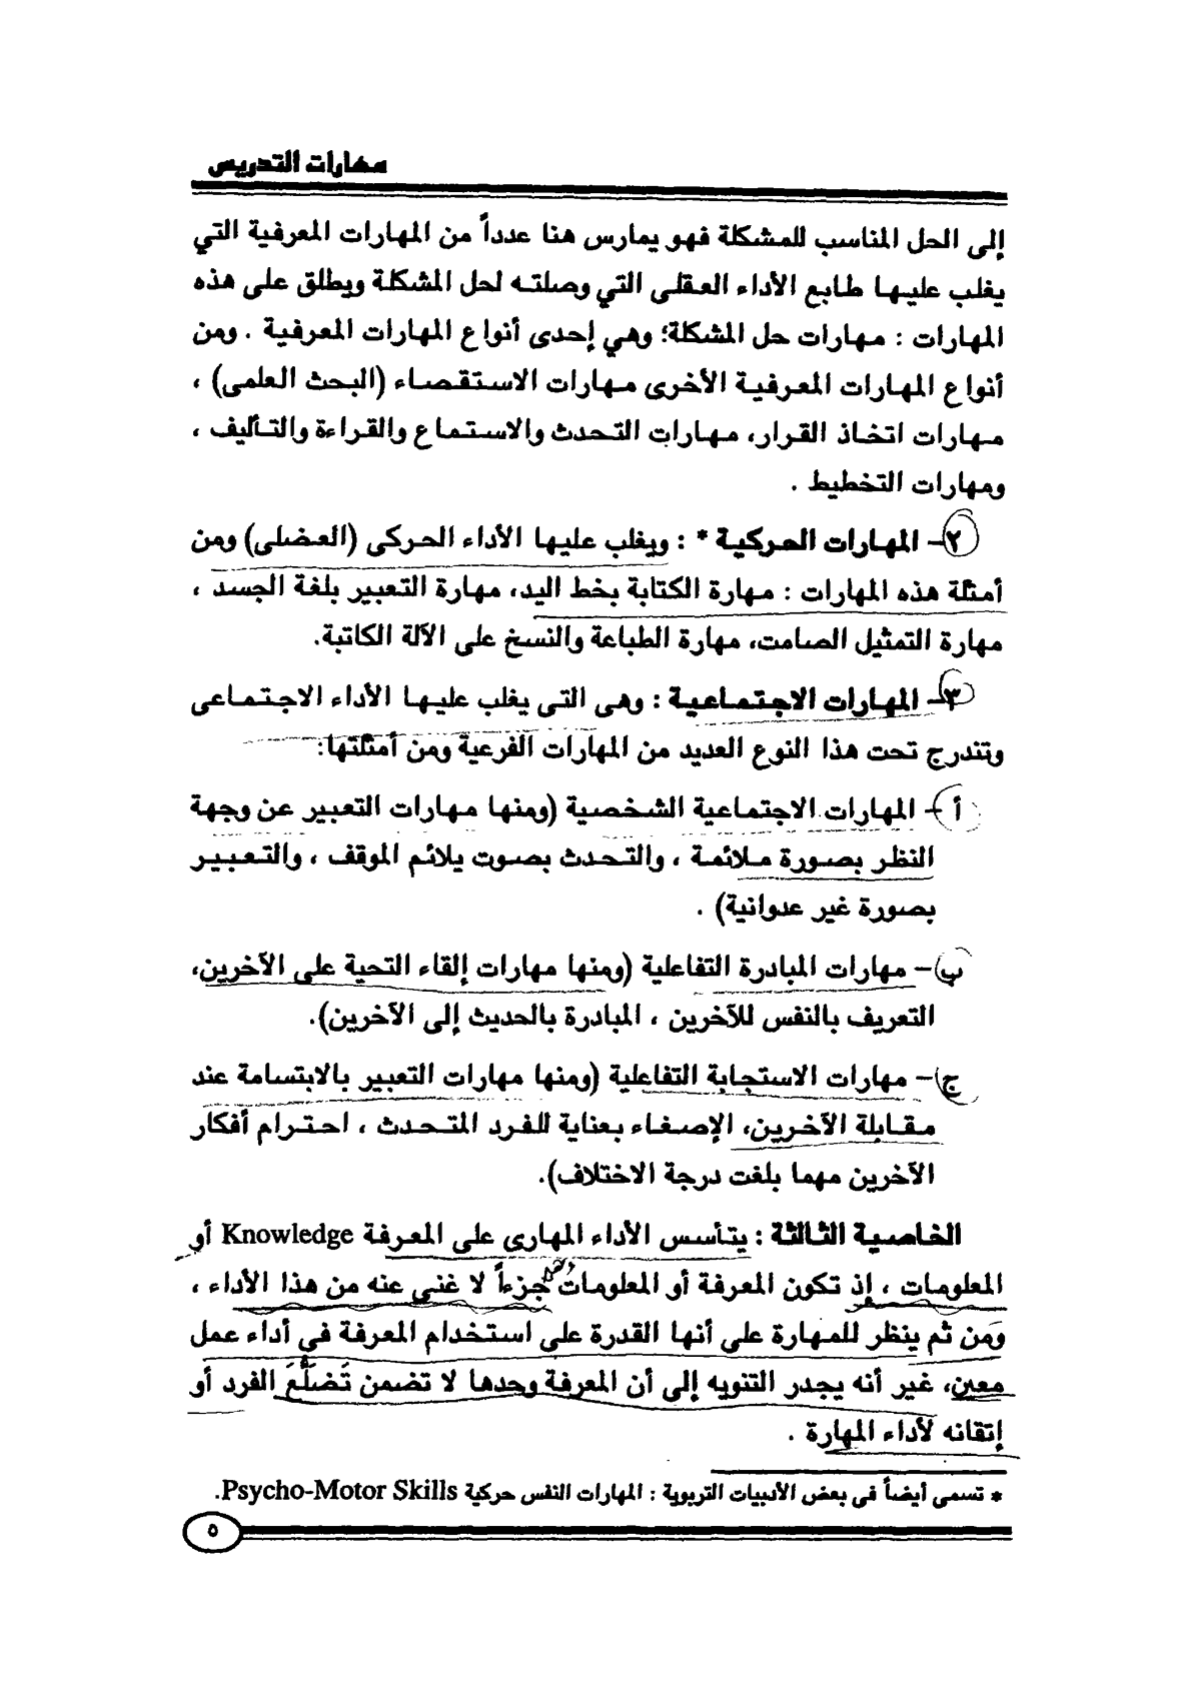 مهارات التدريس
إلى الحل المناسب للمشكلة فهو يمارس هنا عدداً من المهارات المعرفية التي
يغلب عليها طابع الأداء العقلى التي وصلته لحل المشكلة ويطلق على هذه
المهارات : مهارات حل المشكلة؛ وهي إحدى أنواع المهارات المعرفية . ومن
أنواع المهارات المعرفية الأخرى مهارات الاستقصاء (البحث العلمى) ،
مهارات اتخاذ القرار، مهارات التحدث والاستماع والقراءة والتأليف ،
ومهارات التخطيط .
٢- المهارات الحركية * : ويغلب عليها الأداء الحركى (العضلى) ومن
أمثلة هذه المهارات : مهارة الكتابة بخط اليد، مهارة التعبير بلغة الجسد ،
مهارة التمثيل الصامت، مهارة الطباعة والنسخ على الآلة الكاتبة.
٣- المهارات الاجتماعية : وهى التى يغلب عليها الأداء الاجتماعى
وتندرج تحت هذا النوع العديد من المهارات الفرعية ومن أمثلتها:
أ - المهارات الاجتماعية الشخصية (ومنها مهارات التعبير عن وجهة
النظر بصورة ملائمة ، والتحدث بصوت يلائم الموقف ، والتعبير
بصورة غير عدوانية) .
ب- مهارات المبادرة التفاعلية (ومنها مهارات إلقاء التحية على الآخرين،
التعريف بالنفس للآخرين ، المبادرة بالحديث إلى الآخرين).
ج- مهارات الاستجابة التفاعلية (ومنها مهارات التعبير بالابتسامة عند
مقابلة الآخرين، الإصغاء بعناية للفرد المتحدث ، احترام أفكار
الآخرين مهما بلغت درجة الاختلاف).
الخاصية الثالثة : يتأسس الأداء المهارى على المعرفة Knowledge أو
المعلومات ، إذ تكون المعرفة أو المعلومات جزءاً لا غنى عنه من هذا الأداء ،
ومن ثم ينظر للمهارة على أنها القدرة على استخدام المعرفة في أداء عمل
معين، غير أنه يجدر التنويه إلى أن المعرفة وحدها لا تضمن تَضَلُّعَ الفرد أو
إتقانه لأداء المهارة .
* تسمى أيضاً فى بعض الأدبيات التربوية : المهارات النفس حركية Psycho-Motor Skills.
٥